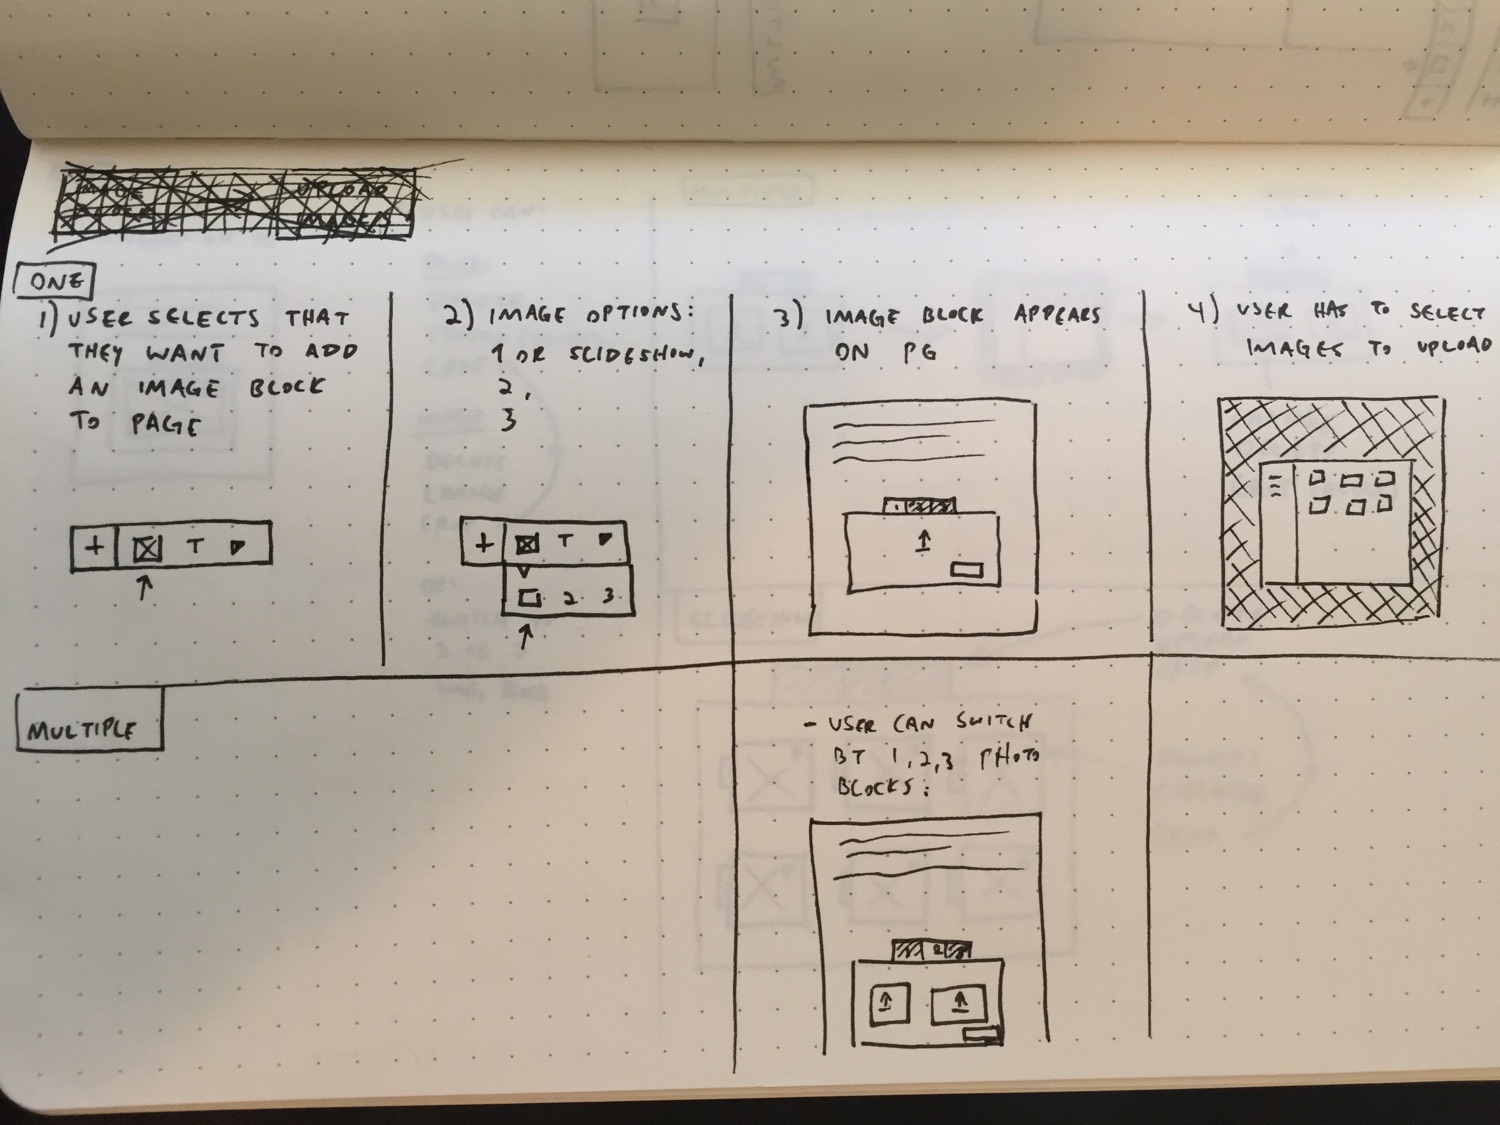 IMAGE
UPLOAD
IMAGES
ONE
1) USER SELECTS THAT
THEY WANT TO ADD
AN IMAGE BLOCK
TO PAGE
+ T
2) IMAGE OPTIONS:
1 OR SLIDESHOW,
2,
3
+ T
2 3
3) IMAGE BLOCK APPEARS
ON PG
4) USER HAS TO SELECT
IMAGES TO UPLOAD
MULTIPLE
- USER CAN SWITCH
BT 1,2,3 PHOTO
BLOCKS:
2